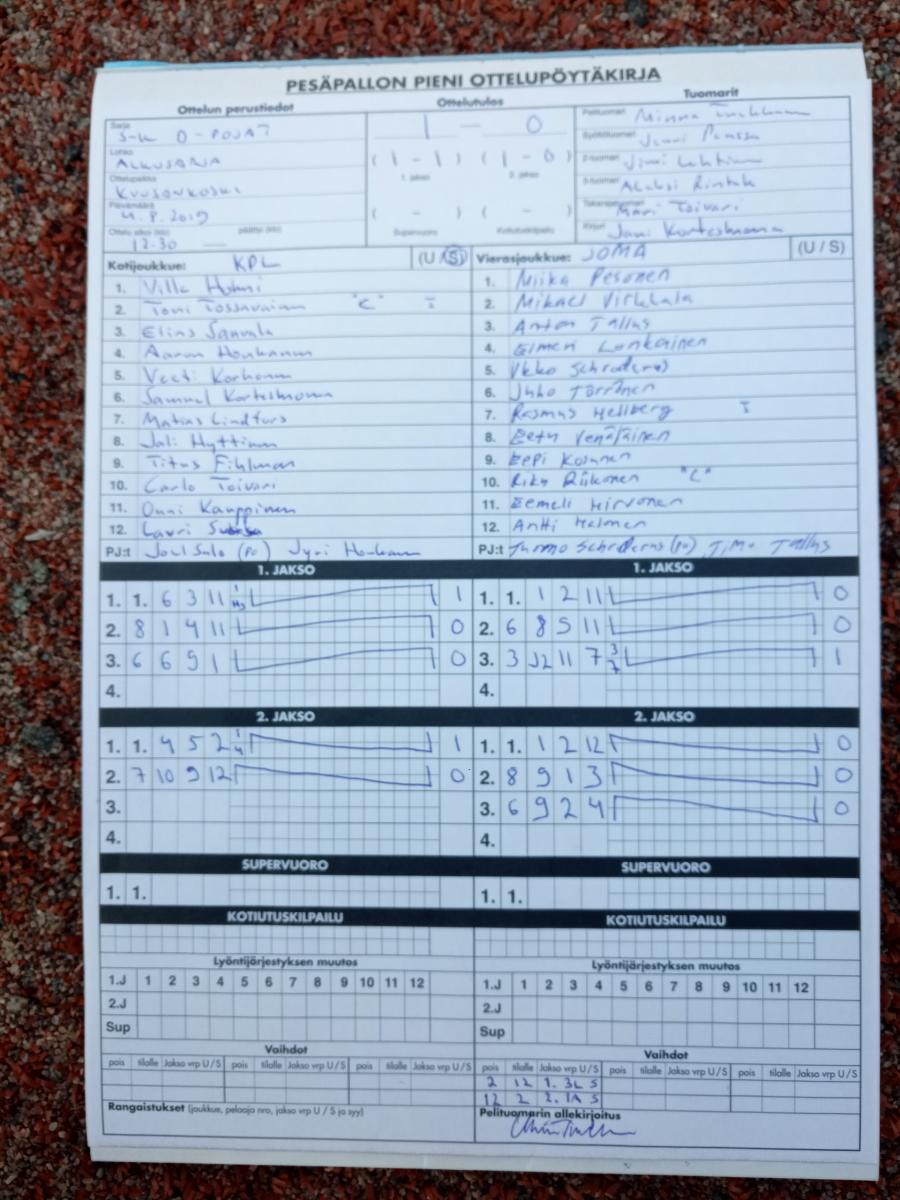 PESÄPALLON PIENI OTTELUPÖYTÄKIRJA
Ottelun perustiedot
Sarja
D-POJAT
Lohko
ALKUSARJA
Ottelupaikka
KUUSANKOSKI
Päivämäärä
4.8.2019
Ottelu alkoi (klo) päättyi (klo)
12.30 —
Ottelutulos
1 — 0
( 1 - 1 ) ( 1 - 0 )
1. jakso 2. jakso
( - ) ( - )
Supervuoro Kotiutuskilpailu
Tuomarit
Pelituomari Minna
Syöttötuomari Jenni
2-tuomari
3-tuomari Aleksi
Takarajatuomari Mari Toivari
Kirjuri
Kotijoukkue: KPL (U / S)
1. Ville
2. Toni Tossavainen "C" I
3. Elias
4. Aaron Honkanen
5. Veeti Korhonen
6. Samuel Kortesmaa
7. Matias Lindfors
8. Jali Hyttinen
9. Titus Fihlman
10. Carlo Toivari
11. Onni Kauppinen
12. Lauri
PJ:t Joel Salo (PJ) Jyri Honkanen
Vierasjoukkue: JOMA (U / S)
1. Miika Pesonen
2. Mikael Virkkala
3. Anton Tallus
4. Elmeri Lonkainen
5. Ukko Schroderus
6. Juho Törrönen
7. Rasmus Hellberg I
8. Eetu Venäläinen
9. Eepi Kosunen
10. Riku Riikonen "C"
11. Eemeli Hirvonen
12. Antti Halonen
PJ:t Turmo Schroderus (PJ), Timo Tallus
1. JAKSO
1. 1. 6 3 11 1
2. 8 1 4 11 0
3. 6 6 9 1 0
4.
1. JAKSO
1. 1. 1 2 11 0
2. 6 8 5 11 0
3. 3 12 11 7 3 7 1
4.
2. JAKSO
1. 1. 4 5 2 1 4 1
2. 7 10 9 12 0
3.
4.
2. JAKSO
1. 1. 1 2 12 0
2. 8 9 1 3 0
3. 6 9 2 4 0
4.
SUPERVUORO
1. 1.
SUPERVUORO
1. 1.
KOTIUTUSKILPAILU
KOTIUTUSKILPAILU
Lyöntijärjestyksen muutos
1.J 1 2 3 4 5 6 7 8 9 10 11 12
2.J
Sup
Lyöntijärjestyksen muutos
1.J 1 2 3 4 5 6 7 8 9 10 11 12
2.J
Sup
Vaihdot
pois tilalle Jakso vrp U / S pois tilalle Jakso vrp U / S pois tilalle Jakso vrp U / S
Rangaistukset (joukkue, pelaaja nro, jakso vrp U / S ja syy)
Vaihdot
pois tilalle Jakso vrp U / S pois tilalle Jakso vrp U / S pois tilalle Jakso vrp U / S
2 12 1. 3L S
12 2 2. 1A S
Pelituomarin allekirjoitus